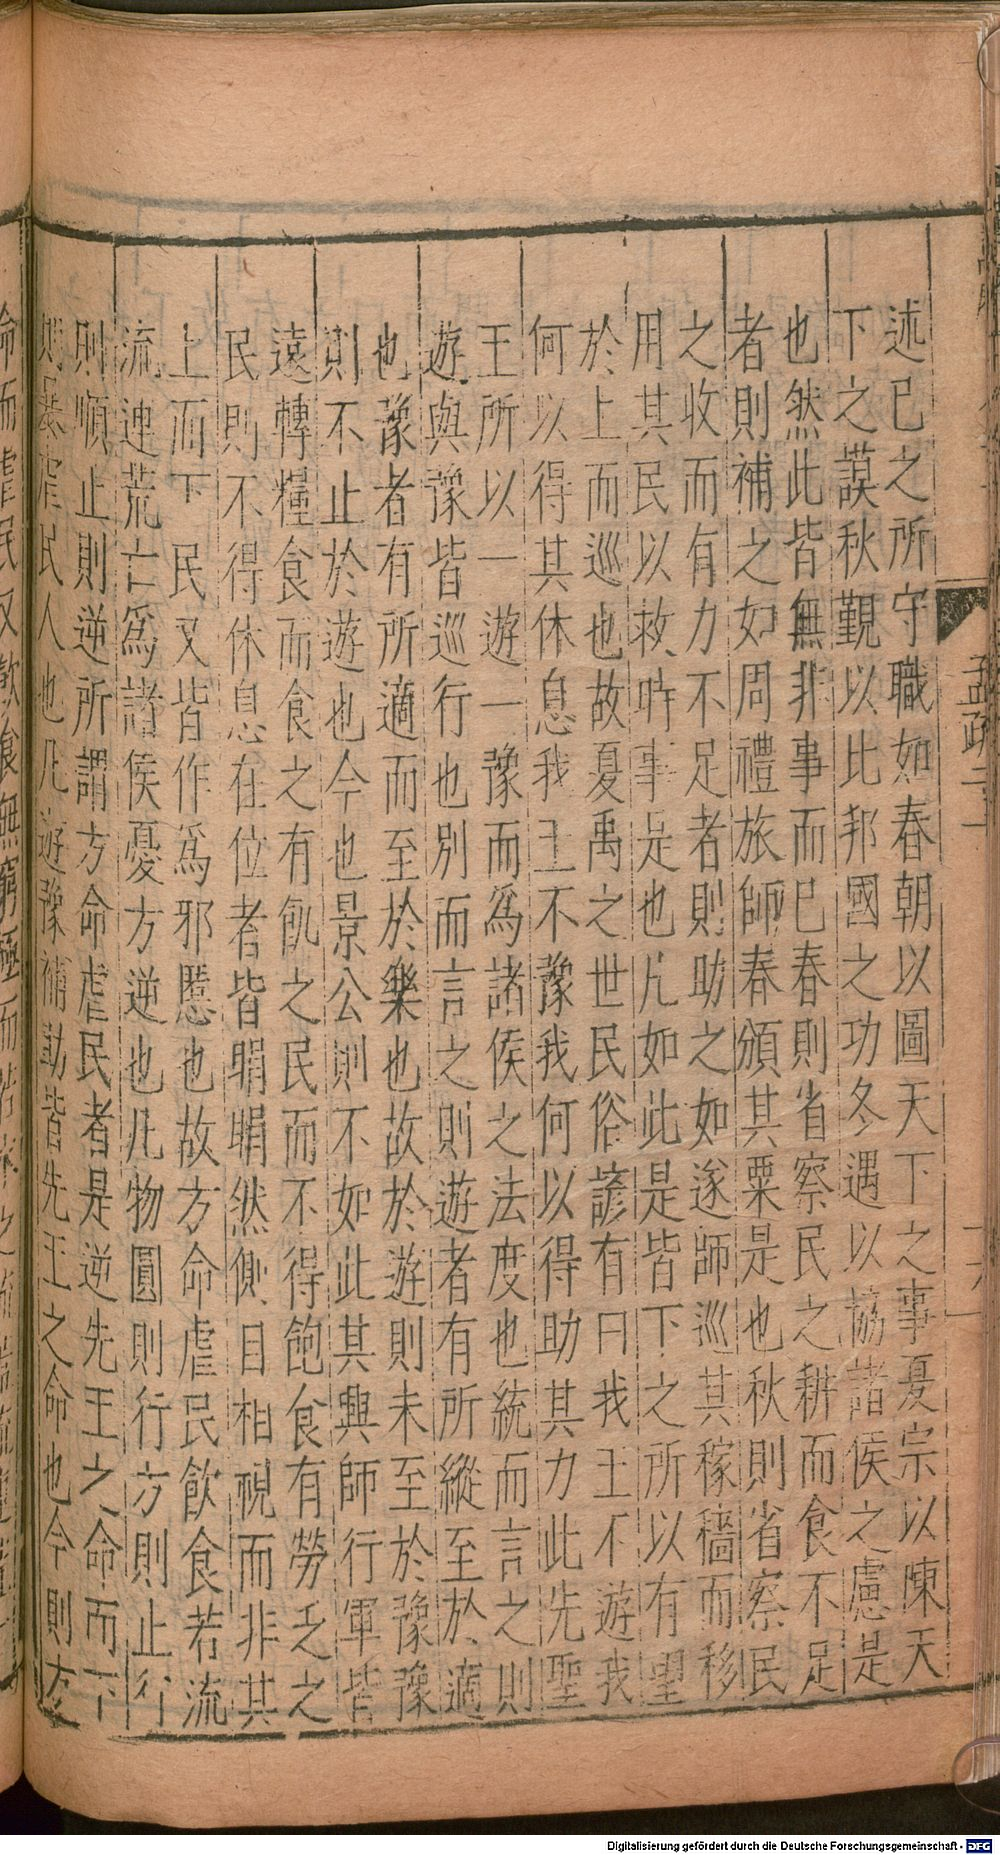 述已之所守職如春朝以圖天下之事夏宗以陳天
下之謨秋覲以比邦國之功冬遇以協諸侯之慮是
也然此皆無非事而已春則省察民之耕而食不足
者則補之如周禮旅師春頒其粟是也秋則省察民
之收而有力不足者則助之如遂師巡其稼穡而移
用其民以救時事是也凡如此是皆下之所以有望
於上而巡也故夏禹之世民俗諺有曰我王不遊我
何以得其休息我王不豫我何以得助其力此先聖
王所以一遊一豫而爲諸侯之法度也統而言之則
遊與豫皆巡行也別而言之則遊者有所縱至於適
也豫者有所適而至於樂也故於遊則未至於豫豫
則不止於遊也今也景公則不如此其興師行軍皆
遠轉糧食而食之有飢之民而不得飽食有勞乏之
民則不得休息在位者皆睊睊然側目相視而非其
上而下民又皆作爲邪慝也故方命虐民飲食若流
流連荒亡爲諸侯憂方逆也凡物圓則行方則止行
則順止則逆所謂方命虐民者是逆先王之命而下
則暴虐民人也凡遊豫補助皆先王之命也今則方
孟疏二
十六
命而虐民又飲食無窮極而若水之流
Digitalisierung gefördert durch die Deutsche Forschungsgemeinschaft - DFG